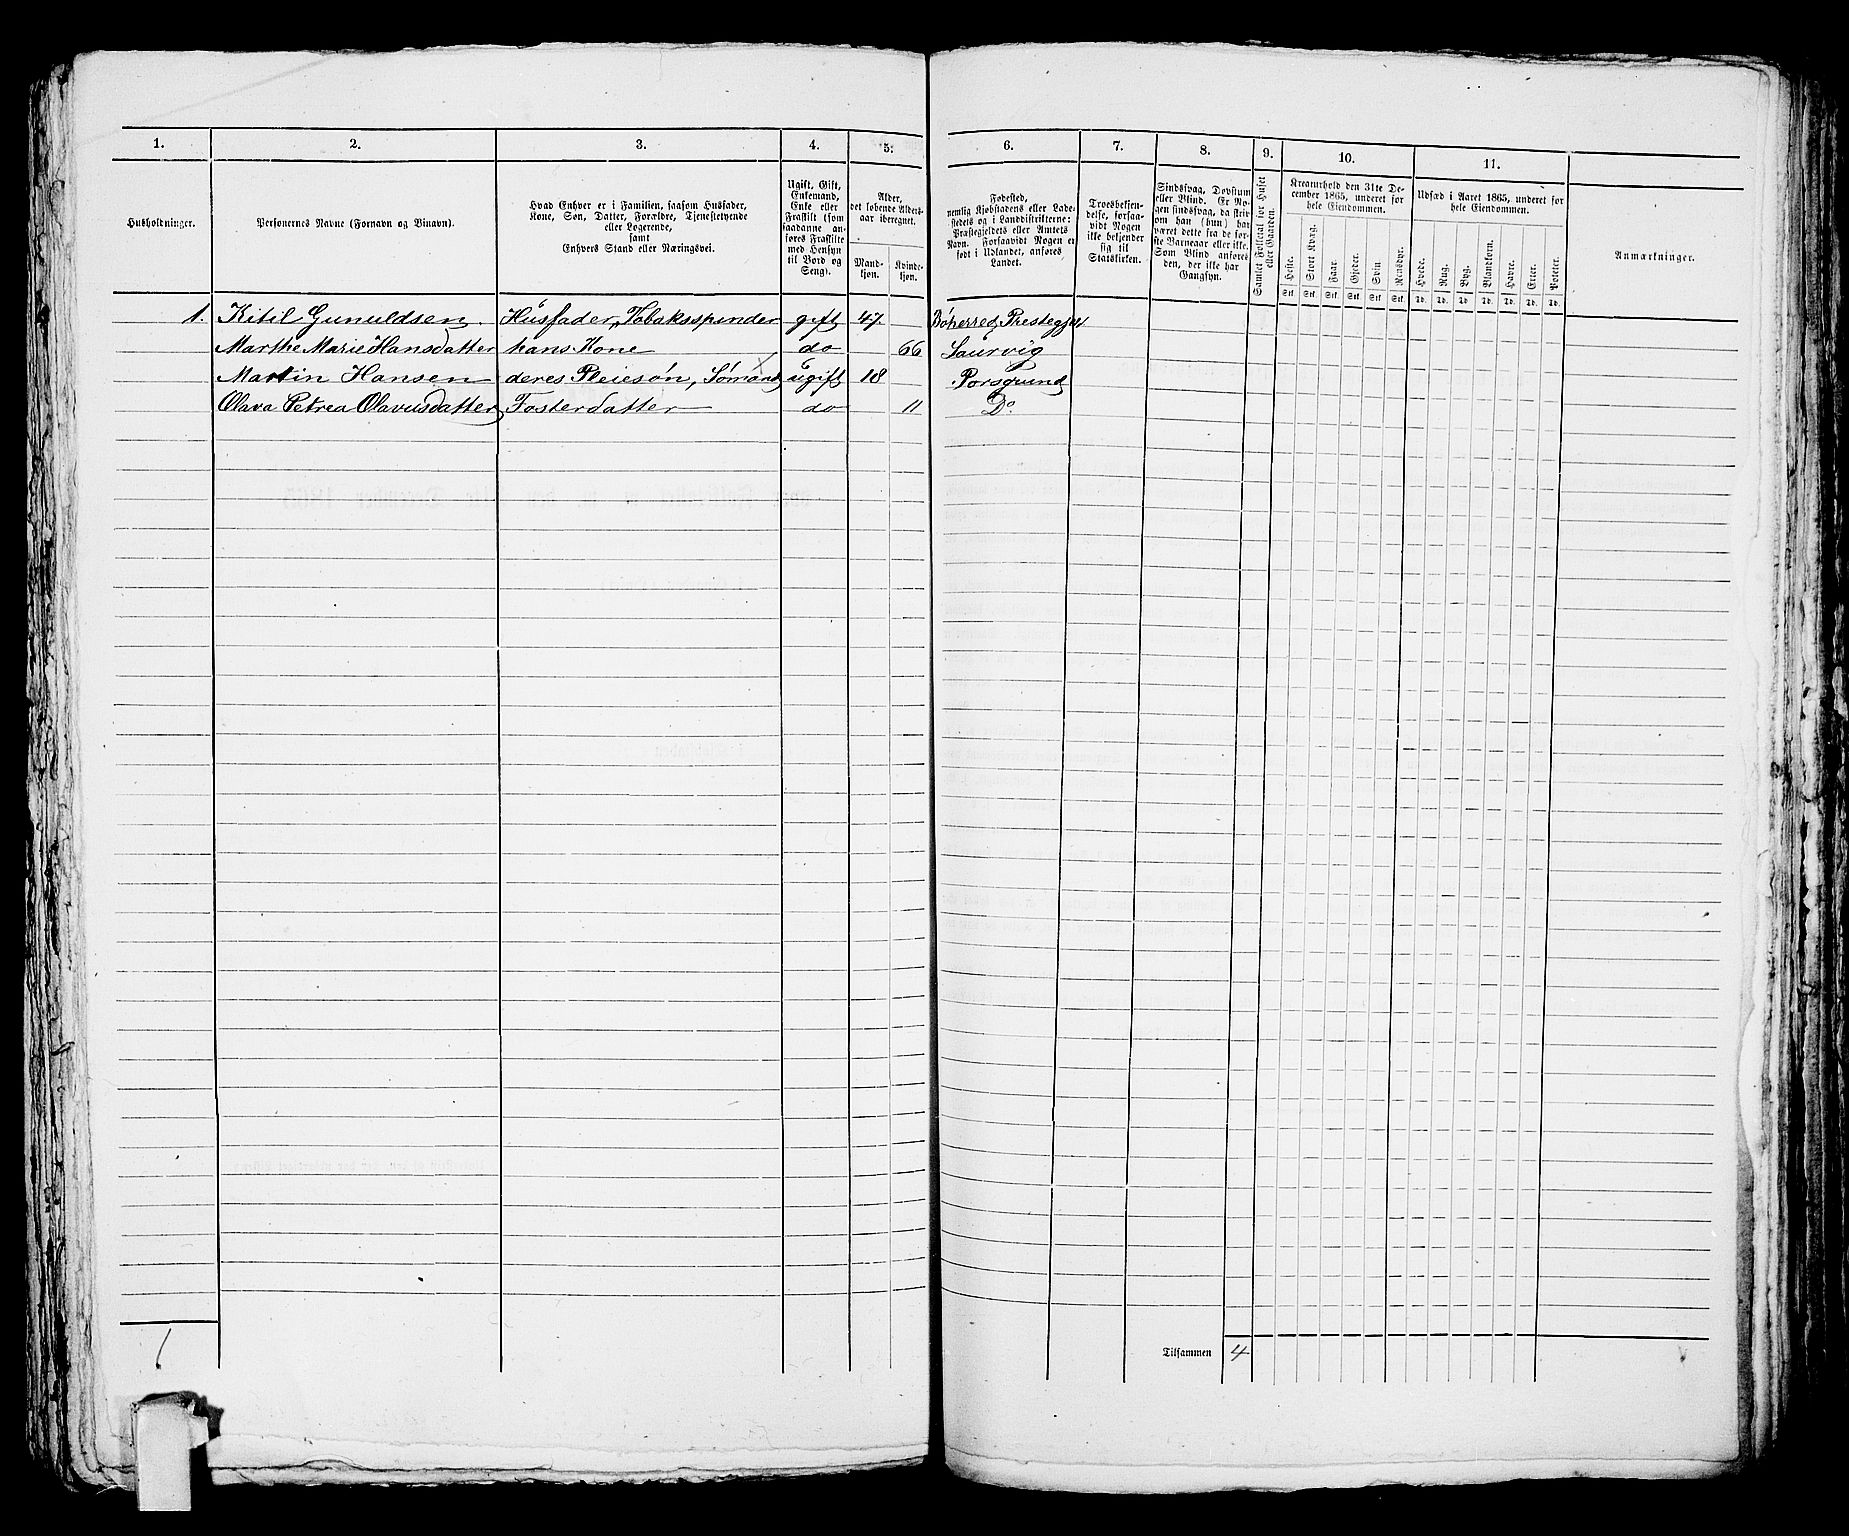 1. 2. 3. 4. 5. 6. 7. 8. 9. 10. 11.
Husholdninger.
Personernes Navne (Fornavn og Binavn).
Hvad Enhver er i Familien, saasom Husfader,
Kone, Søn, Datter, Forældre, Tjenestetyende
eller Logerende,
samt
Enhvers Stand eller Næringsvei.
Ugift, Gift,
Enkemand,
Enke eller
Fraskilt (som
saadanne an-
føres Fraskilte
med Hensyn
til Bord og
Seng).
Alder,
det løbende Alders-
aar iberegnet.
Mand-
kjøn.
Kvinde-
kjøn.
Fødested,
nemlig Kjøbstadens eller Lade-
stedets og i Landdistrikterne:
Præstegjeldets eller Amtets
Navn. Forsaavidt Nogen er
født i Udlandet, anføres
Landet.
Troesbekjen-
delse, forsaa-
vidt Nogen
ikke bekjender
sig til
Statskirken.
Sindssvag, Døvstum
eller Blind. Er No-
gen sindssvag, da skriv
om han (hun) har
været dette fra de før-
ste Barneaar eller ikke.
Som Blind anføres
den, der ikke har
Gangsyn.
Samlet Folketal for Huset
eller Gaarden.
Kreaturhold den 31te De-
cember 1865, underet for
hele Eiendommen.
Heste.
Stort Kvæg.
Faar.
Gjeder.
Svin
Rensdyr.
Stk. Stk. Stk. Stk. Stk. Stk.
Udsæd i Aaret 1865, underet for
hele Eiendommen.
Hvede.
Rug.
Byg.
Blandkorn.
Havre.
Erter.
Poteter.
Td. Td. Td Td. Td. Td. Td.
Anmærkninger.
1. Kitil Gunuldsen. Husfader, Tobaksspinder gift 47. Bøherred, Prestegjel
Marthe Marie Hansdatter hans Kone do 66 Laurvig
Martin Hansen deres Pleiesøn, Sømand ugift 18 Porsgrund
Olava Petrea Olavusdatter Fosterdatter do 11 Do
1
Tilsammen 4